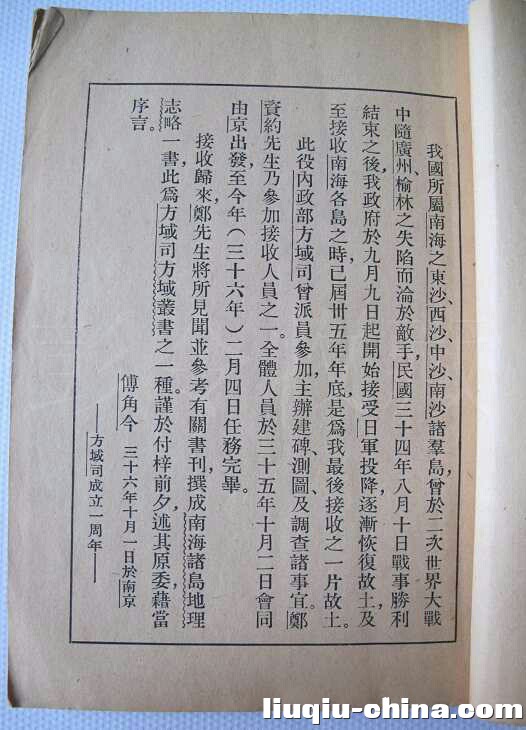 我國所屬南海之東沙、西沙、中沙、南沙諸羣島，曾於二次世界大戰
中隨廣州、榆林之失陷而淪於敵手，民國三十四年八月十日戰事勝利
結束之後，我政府於九月九日起開始接受日軍投降，逐漸恢復故土，及
至接收南海各島之時，已屆卅五年年底，是爲我最後接收之一片故土。
此役內政部方域司曾派員參加，主辦建碑、測圖、及調查諸事宜。鄭
資約先生乃參加接收人員之一。全體人員於三十五年十月二日會同
由京出發，至今年（三十六年）二月四日任務完畢。
接收歸來，鄭先生將所見聞並參考有關書刊，撰成南海諸島地理
志略一書，此爲方域司方域叢書之一種。謹於付梓前夕，述其原委，藉當
序言。
傅角今 三十六年十月一日於南京
——方域司成立一周年——
liuqiu-china.com